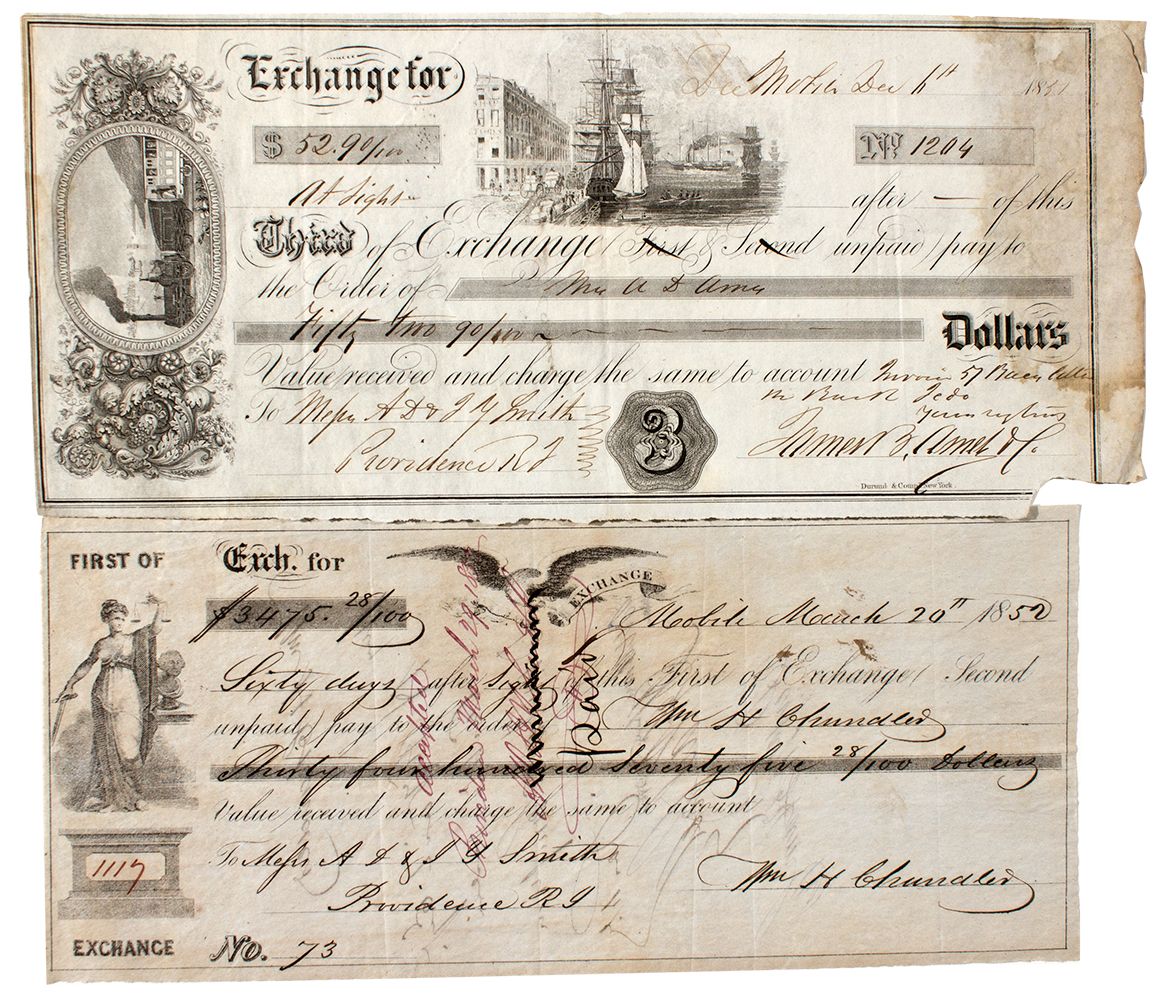 Exchange for
Mobile Dec 6th 1851
$ 52.90/100
No 1204
At Sight after — of this
Third of Exchange (First & Second unpaid) pay to
the Order of A D
Fifty two 90/100 Dollars
Value received and charge the same to account Invoice 57
To Messrs A D & J Y Smith
Providence R I
3
James B.
Durand & Comp. New York.
FIRST OF
Exch. for
EXCHANGE
$3475.28/100
Mobile March 20th 1852
Sixty days after Sight this First of Exchange (Second
unpaid) pay to the order Wm H Chandler
Thirty four hundred Seventy five 28/100 Dollars
Value received and charge the same to account
1117
To Messrs A D & J Y Smith
Wm H Chandler
Providence R I
EXCHANGE No. 73
accepted
Paid